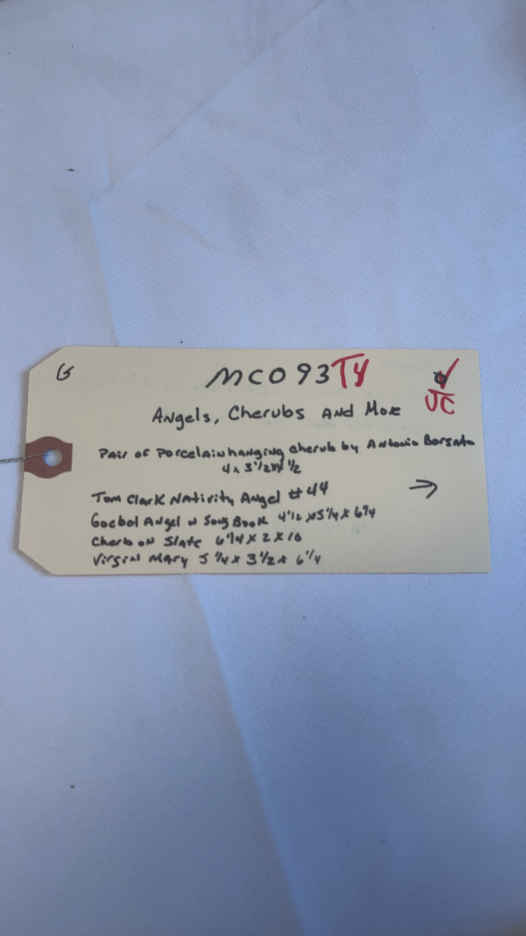 G MC093 TY
JC
Angels, Cherubs And More
Pair of Porcelain hanging cherub by Antonio Borsato
4 x 3 1/2 x 1/2
Tom Clark Nativity Angel #44 →
Goebal Angel w Song Book 4 1/2 x 5 1/4 x 6 3/4
Cherb on Slate 6 1/4 x 2 x 10
Virgin Mary 5 1/4 x 3 1/2 x 6 1/4